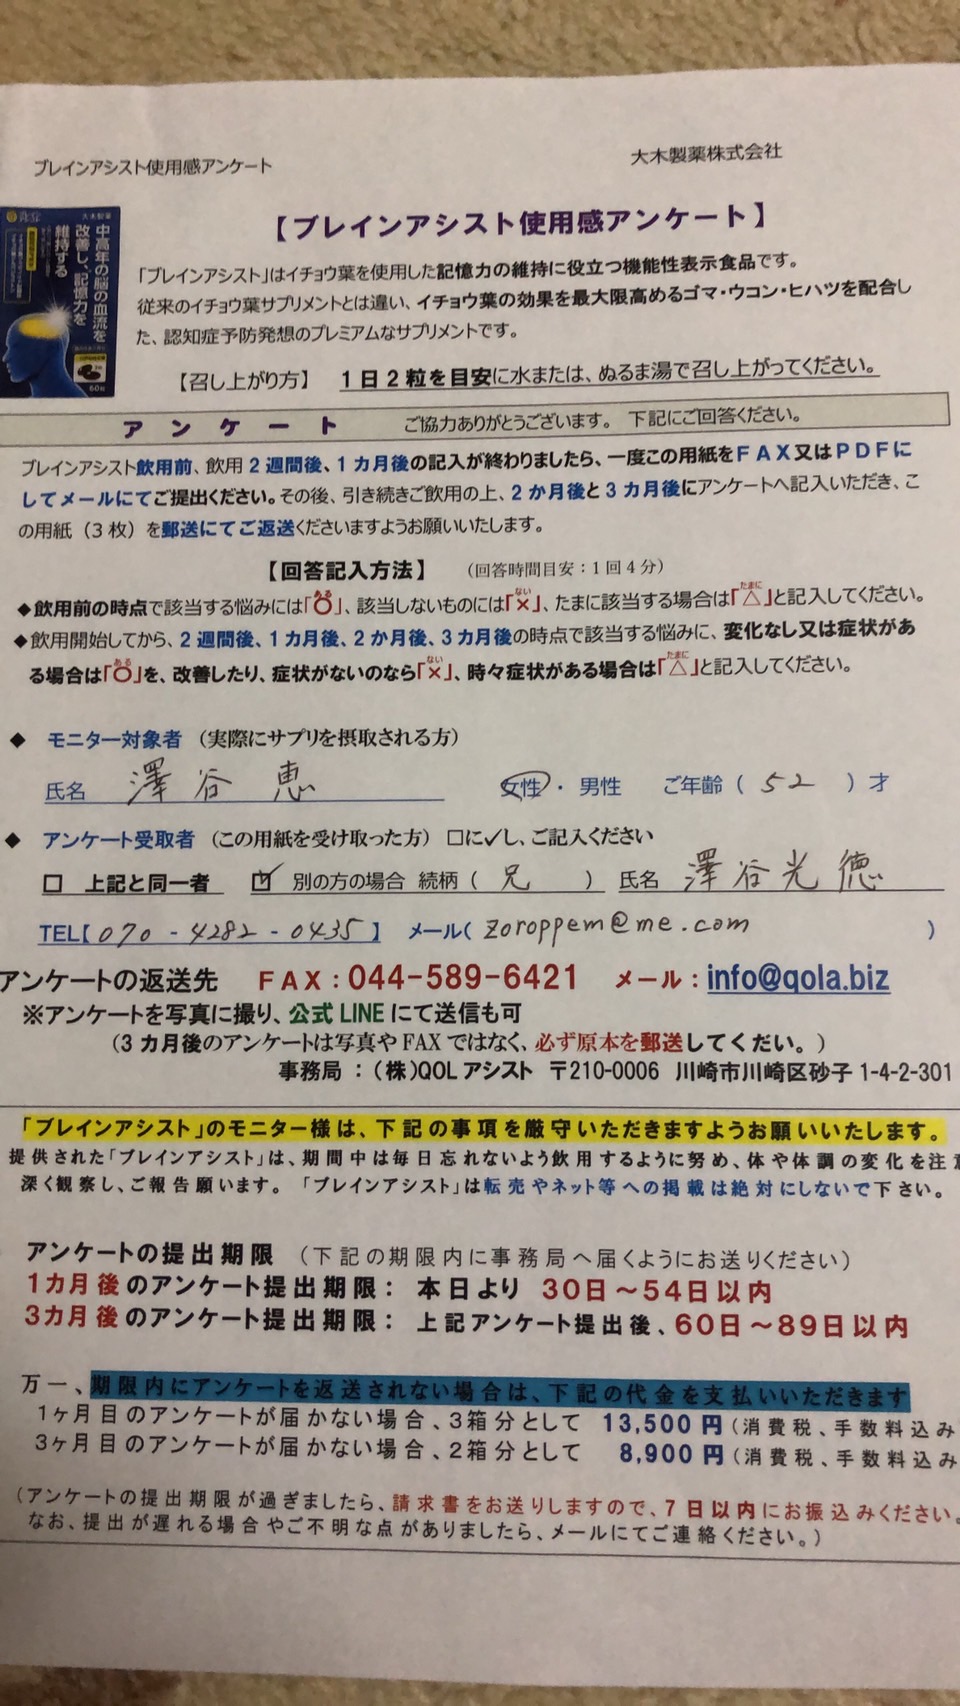 ブレインアシスト使用感アンケート
大木製薬株式会社
大木製薬
中高年の脳の血流を
改善し、記憶力を
維持する
60粒
【ブレインアシスト使用感アンケート】
「ブレインアシスト」はイチョウ葉を使用した記憶力の維持に役立つ機能性表示食品です。
従来のイチョウ葉サプリメントとは違い、イチョウ葉の効果を最大限高めるゴマ・ウコン・ヒハツを配合し
た、認知症予防発想のプレミアムなサプリメントです。
【召し上がり方】 1日2粒を目安に水または、ぬるま湯で召し上がってください。
アンケート ご協力ありがとうございます。 下記にご回答ください。
ブレインアシスト飲用前、飲用2週間後、1カ月後の記入が終わりましたら、一度この用紙をFAX又はPDFに
してメールにてご提出ください。その後、引き続きご飲用の上、2か月後と3カ月後にアンケートへ記入いただき、こ
の用紙（3枚）を郵送にてご返送くださいますようお願いいたします。
【回答記入方法】 （回答時間目安：1回4分）
◆飲用前の時点で該当する悩みには「〇(ある)」、該当しないものには「×(ない)」、たまに該当する場合は「△(たまに)」と記入してください。
◆飲用開始してから、2週間後、1カ月後、2か月後、3カ月後の時点で該当する悩みに、変化なし又は症状があ
る場合は「〇(ある)」を、改善したり、症状がないのなら「×(ない)」、時々症状がある場合は「△(たまに)」と記入してください。
◆ モニター対象者 （実際にサプリを摂取される方）
氏名 澤谷 恵 女性・男性 ご年齢（ 52 ）才
◆ アンケート受取者 （この用紙を受け取った方） □に✓し、ご記入ください
□ 上記と同一者 ☑ 別の方の場合 続柄（ 兄 ） 氏名 澤谷光徳
TEL【070-4282-0435】 メール（zoroppem@me.com ）
アンケートの返送先 FAX：044-589-6421 メール：info@qola.biz
※アンケートを写真に撮り、公式LINEにて送信も可
（3カ月後のアンケートは写真やFAXではなく、必ず原本を郵送してくだい。）
事務局 ：（株）QOLアシスト 〒210-0006 川崎市川崎区砂子1-4-2-301
「ブレインアシスト」のモニター様は、下記の事項を厳守いただきますようお願いいたします。
提供された「ブレインアシスト」は、期間中は毎日忘れないよう飲用するように努め、体や体調の変化を注意
深く観察し、ご報告願います。「ブレインアシスト」は転売やネット等への掲載は絶対にしないで下さい。
アンケートの提出期限 （下記の期限内に事務局へ届くようにお送りください）
1カ月後のアンケート提出期限： 本日より 30日～54日以内
3カ月後のアンケート提出期限： 上記アンケート提出後、60日～89日以内
万一、期限内にアンケートを返送されない場合は、下記の代金を支払いいただきます
1ヶ月目のアンケートが届かない場合、3箱分として 13,500円（消費税、手数料込み
3ヶ月目のアンケートが届かない場合、2箱分として 8,900円（消費税、手数料込み
（アンケートの提出期限が過ぎましたら、請求書をお送りしますので、7日以内にお振込みください。
なお、提出が遅れる場合やご不明な点がありましたら、メールにてご連絡ください。）